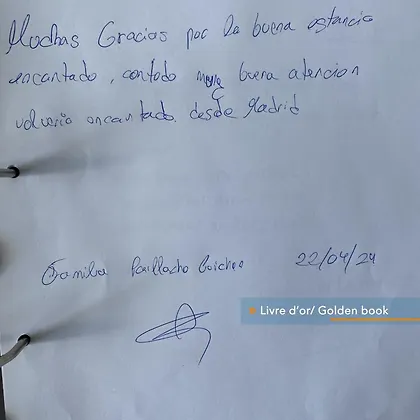 Muchas Gracias por la buena estancia
encantado, con todo muy buena atencion
volveria encantado. desde Madrid
Familia 22/04/24
Livre d'or/ Golden book